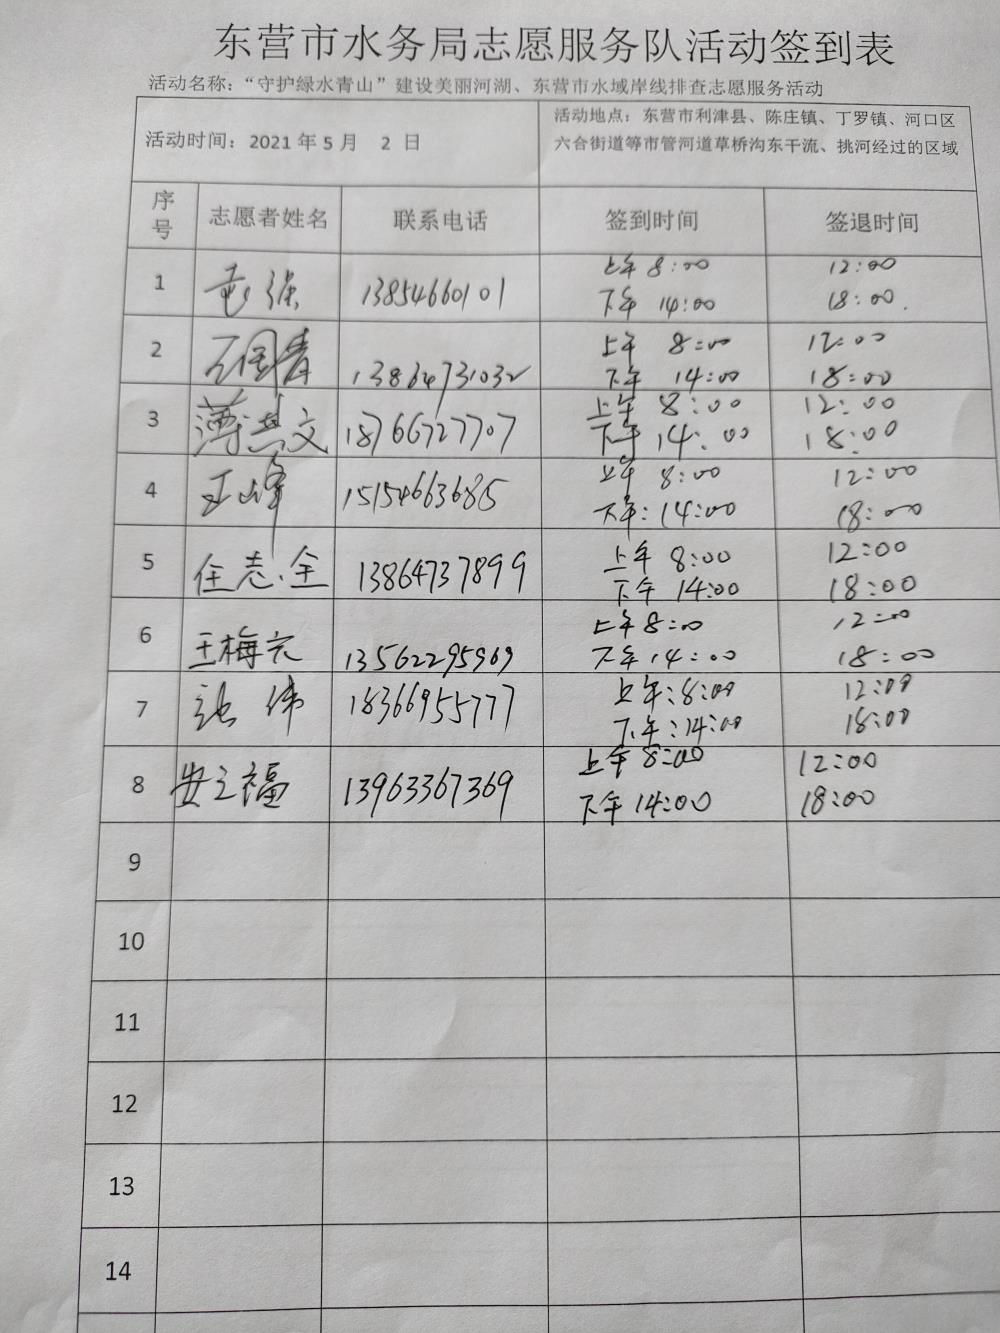 东营市水务局志愿服务队活动签到表
活动名称：“守护绿水青山”建设美丽河湖、东营市水域岸线排查志愿服务活动
活动时间：2021 年 5 月 2 日
活动地点：东营市利津县、陈庄镇、丁罗镇、河口区
六合街道等市管河道草桥沟东干流、挑河经过的区域
序号 志愿者姓名 联系电话 签到时间 签退时间
1 13854660101 上午 8:00 12:00
下午 14:00 18:00.
2 石国青 13864731032 上午 8:00 12:00
下午 14:00 18:00
3 薄其文 18766727707 上午 8:00 12:00
下午 14:00 18:00
4 王峰 15154663685 上午 8:00 12:00
下午: 14:00 18:00
5 任志全 13864737899 上午 8:00 12:00
下午 14:00 18:00
6 王梅 13562295969 上午 8:00 12:00
下午 14:00 18:00
7 张伟 18366955777 上午:8:00 12:00
下午:14:00 18:00
8 安之福 13963367369 上午 8:00 12:00
下午 14:00 18:00
9
10
11
12
13
14